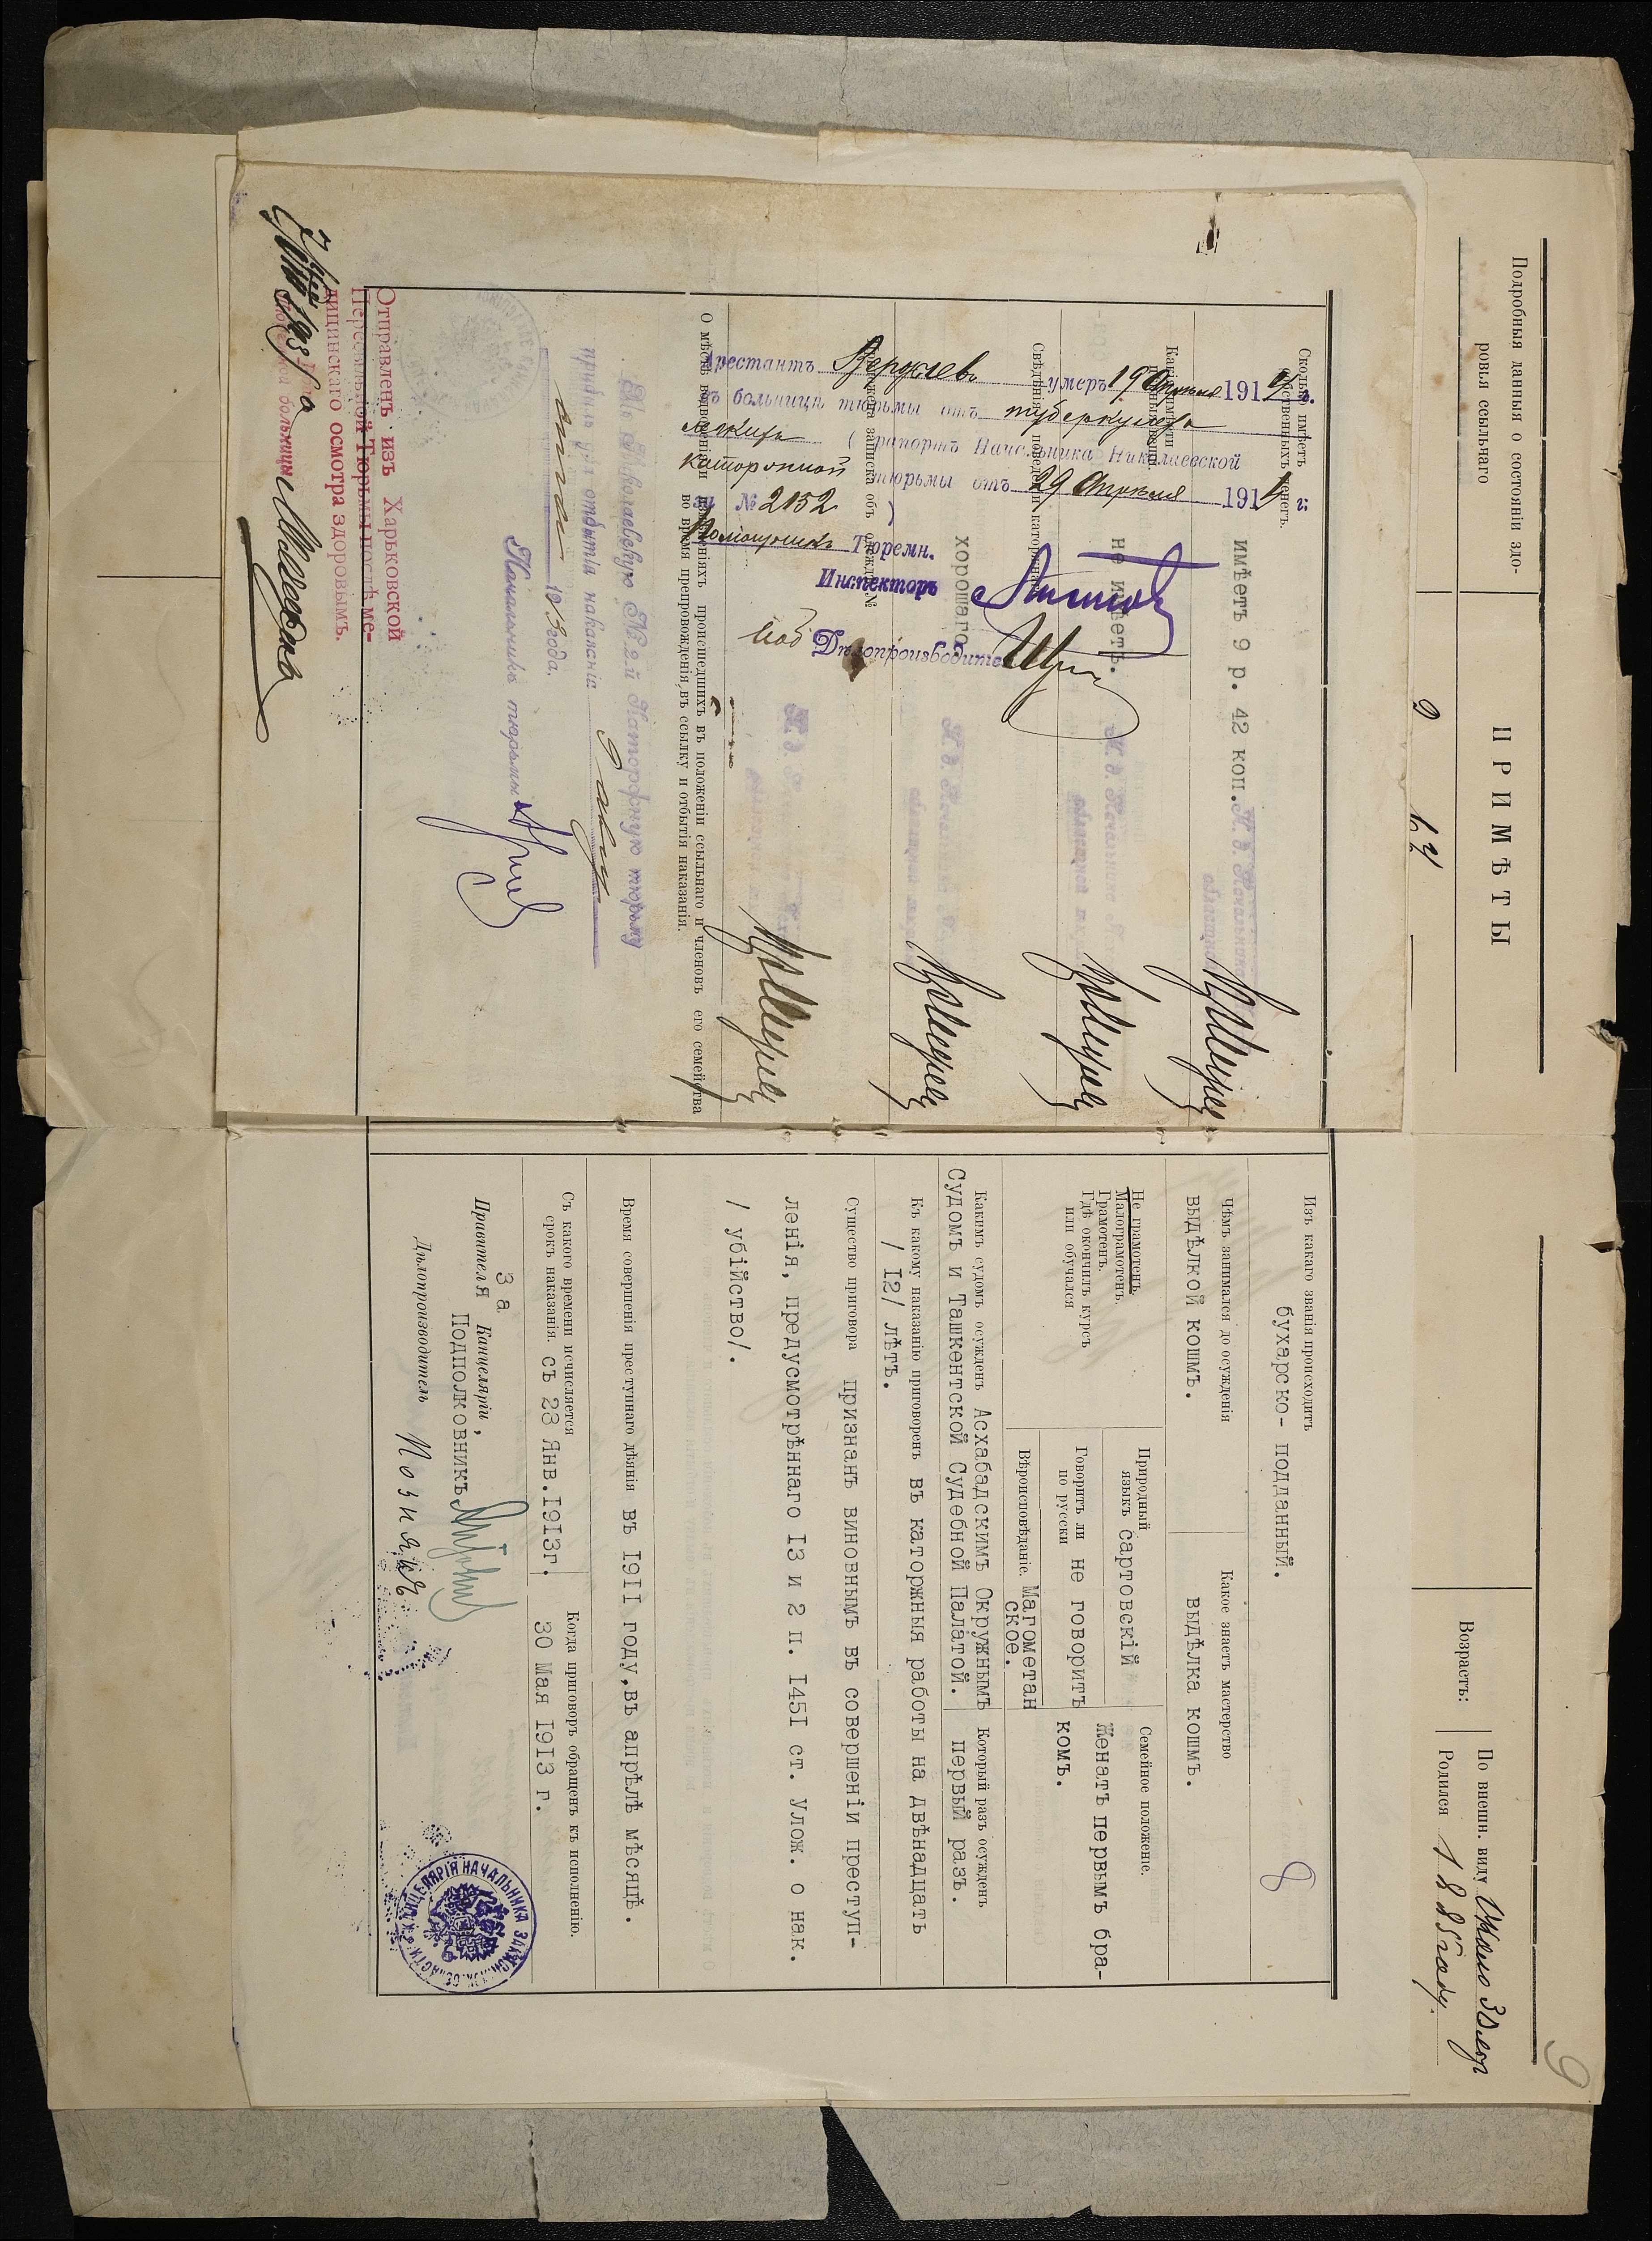 Подробныя данныя о состояніи здо-
ровья ссыльнаго
ПРИМѢТЫ
Возрастъ:
По внешн. виду Около 30 лет
Родился 1885 году.
9
8
Изъ какаго званія происходитъ
бухарско- подданный.
Чѣмъ занимался до осужденія
выдѣлкой кошмъ.
Какое знаетъ мастерство
выдѣлка кошмъ.
Не грамотенъ.
Малограмотенъ.
Грамотенъ.
Гдѣ окончилъ курсъ
или обучался
Природный
языкъ сартовскій
Говоритъ ли
по русски не говоритъ
Вѣроисповѣданіе. Магометан
ское.
Семейное положеніе.
женатъ первымъ бра-
комъ.
Какимъ судомъ осужденъ Асхабадскимъ Окружнымъ
Судомъ и Ташкентской Судебной Палатой.
Который разъ осужденъ
первый разъ.
Къ какому наказанію приговоренъ въ каторжныя работы на двѣнадцать
/ 12/ лѣтъ.
Существо приговора признанъ виновнымъ въ совершеніи преступ-
ленія, предусмотрѣннаго 13 и 2 п. 1451 ст. Улож. о нак.
/ убійство/.
Время совершенія преступнаго дѣянія въ 1911 году, въ апрѣлѣ мѣсяцѣ.
Съ какого времени исчисляется
срокъ наказанія. съ 23 Янв. 1913г.
Когда приговоръ обращенъ къ исполненію.
30 Мая 1913 г.
За
Правителя Канцеляріи,
Подполковникъ
Дѣлопроизводитель Позняк
КАНЦЕЛЯРІЯ НАЧАЛЬНИКА ЗАКАСП. ОБЛАСТИ
Сколько имѣетъ
собственныхъ денегъ.
имѣетъ 9 р. 42 коп.
И. д. Начальника
областной
не имѣетъ.
И. д. Начальника
областной
Свѣдѣнія о поведеніи каторжнаго
хорошаго.
Арестантъ умеръ 19 Апреля 1914 г.
въ больницѣ тюрьмы отъ туберкулеза
легких (рапортъ Начальника Николаевской
каторжной тюрьмы отъ 29 Апреля 1914 г.
за № 2152 )
Помощник Тюремн.
Инспекторъ
Дѣлопроизводитель
О мѣстѣ водворенія и измѣненіяхъ происшедшихъ въ положеніи ссыльнаго и членовъ его семейства
во время препровожденія въ ссылку и отбытія наказанія.
Въ Николаевскую № 2й Каторжную тюрьму
прибылъ для отбытія наказанія
1913 года.
Начальникъ тюрьмы
Отправленъ изъ Харьковской
Пересыльной Тюрьмы послѣ ме-
дицинскаго осмотра здоровымъ.
больницы